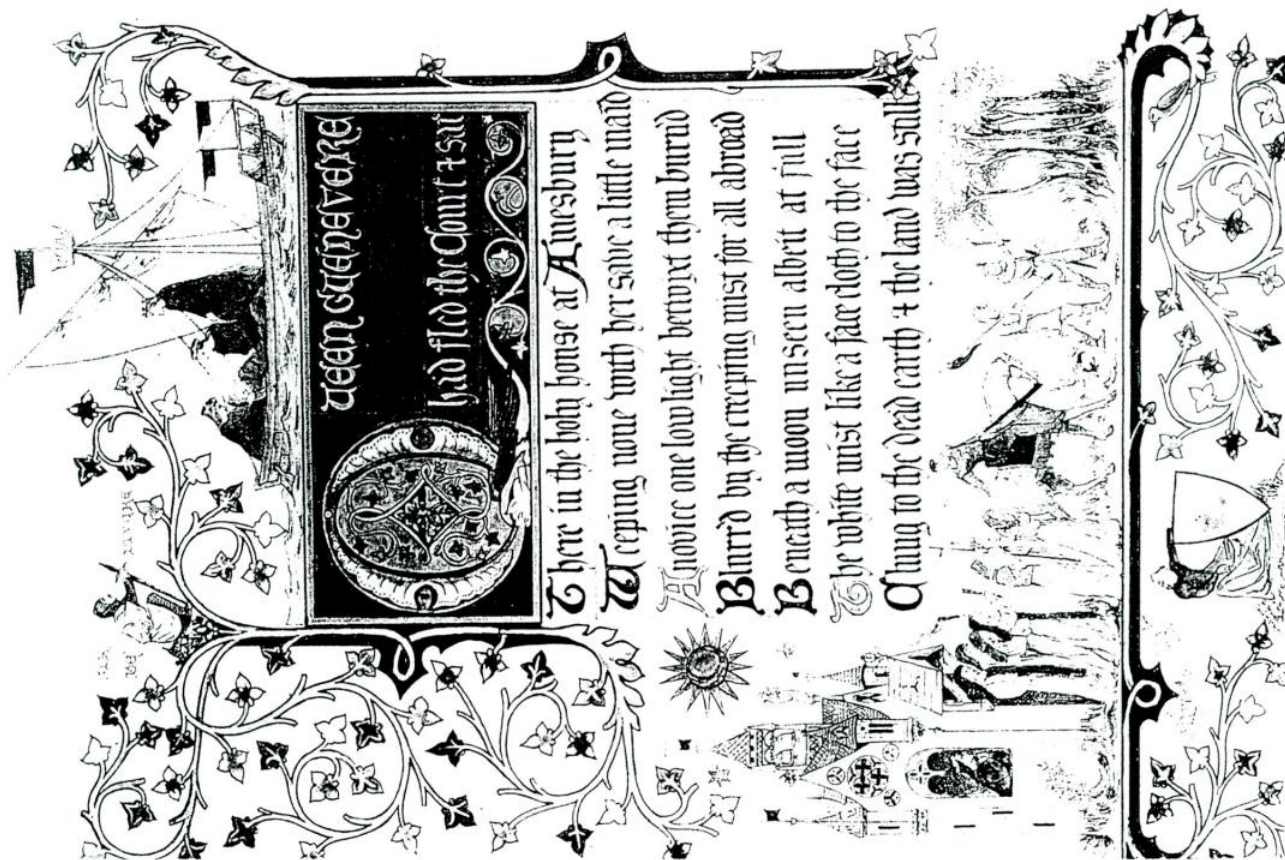 QUEEN GUENEVERE
had fled the Court & sat
There in the holy house at Almesburg
Weeping none with her save a little maid
A novice one low light betwixt them burnd
Blurr'd by the creeping mist for all abroad
Beneath a moon unseen albeit at full
The white mist like a face cloth to the face
Clung to the dead earth & the land was still